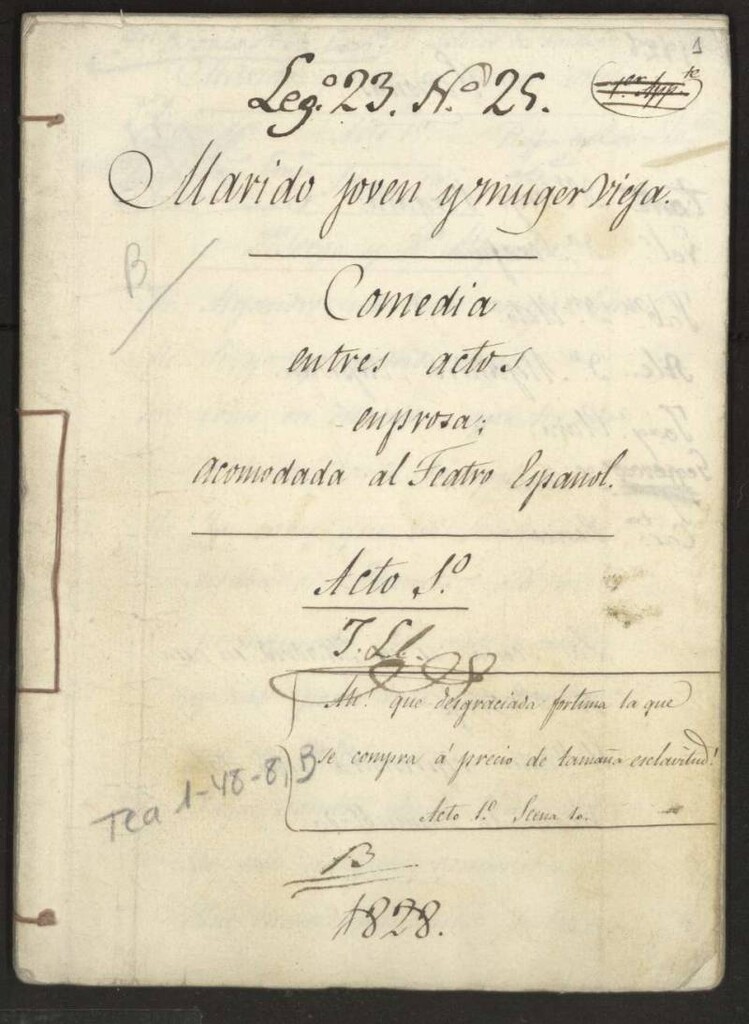 1
Leg.º 23. N.º 25.
1.er App.te
Marido joven y muger vieja.
B
Comedia
entres actos
enprosa;
acomodada al Teatro Español.
Acto 1.º
J. Ll.
Ah! que desgraciada fortuna la que
se compra á precio de tamaña esclavitud!
Acto 1.º Scena 10.
Tea 1-48-8, B
B
1828.